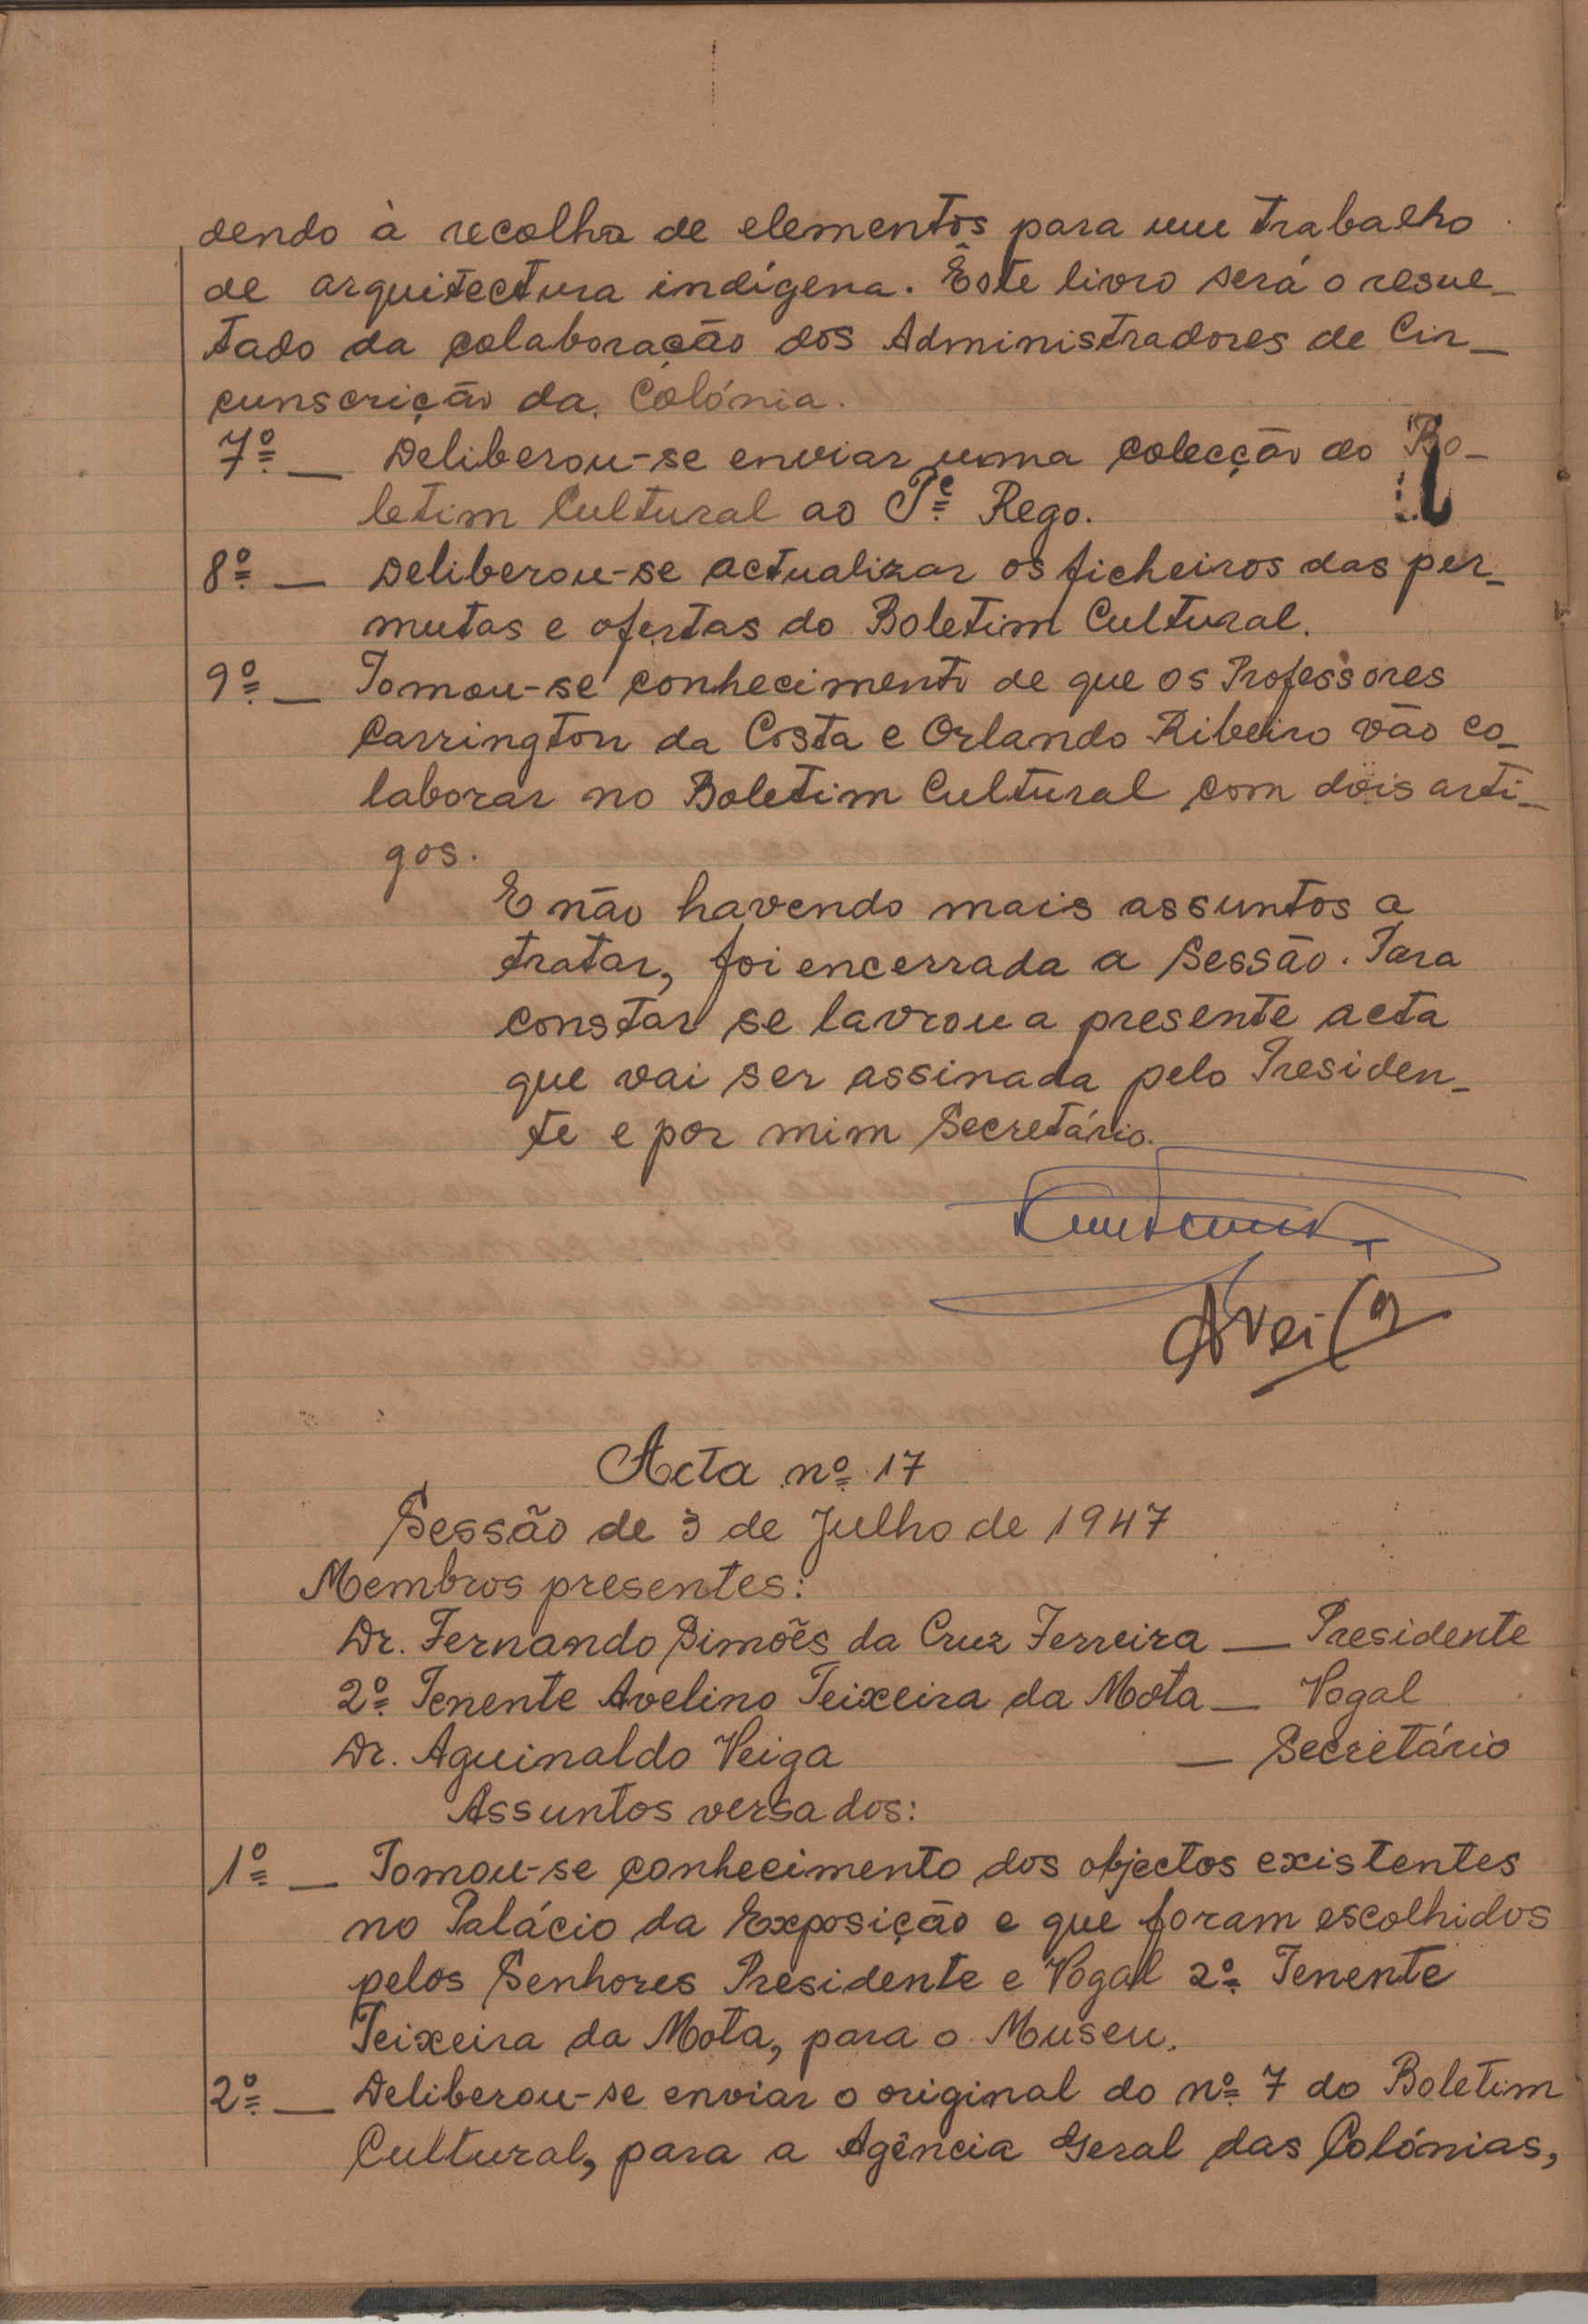 dendo à recolha de elementos para um trabalho
de arquitectura indígena. Êste livro será o resul-
tado da colaboração dos Administradores de Cir-
cunscrição da Colónia.
7º — Deliberou-se enviar uma colecção do Bo-
letim Cultural ao Pe Rego.
8º — Deliberou-se actualizar os ficheiros das per-
mutas e ofertas do Boletim Cultural.
9º — Tomou-se conhecimento de que os Professores
Carrington da Costa e Orlando Ribeiro vão co-
laborar no Boletim Cultural com dois arti-
gos.
E não havendo mais assuntos a
tratar, foi encerrada a Sessão. Para
constar se lavrou a presente acta
que vai ser assinada pelo Presiden-
te e por mim Secretário.
AVeiga
Acta nº 17
Sessão de 3 de Julho de 1947
Membros presentes:
Dr. Fernando Simões da Cruz Ferreira — Presidente
2º Tenente Avelino Teixeira da Mota — Vogal
Dr. Aguinaldo Veiga — Secretário
Assuntos versados:
1º — Tomou-se conhecimento dos objectos existentes
no Palácio da Exposição e que foram escolhidos
pelos Senhores Presidente e Vogal 2º Tenente
Teixeira da Mota, para o Museu.
2º — Deliberou-se enviar o original do nº 7 do Boletim
Cultural, para a Agência Geral das Colónias,